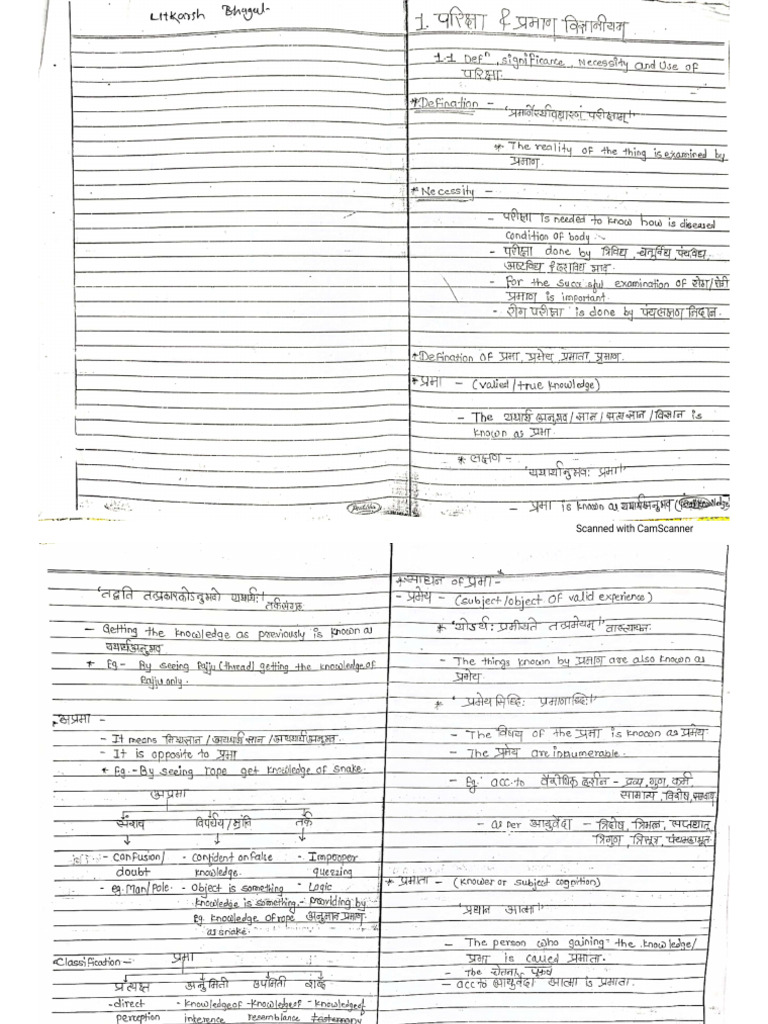 Utkarsh Bhagat
1. परिक्षा & प्रमाण विज्ञानीयम्
1.1 Defⁿ, significance, Necessity and Use of
परिक्षा.
* Defination - 'प्रमाणैरर्थावधारणं परीक्षणम्।'
* The reality of the thing is examined by
प्रमाण.
* Necessity -
- परीक्षा is needed to know how is diseased
condition of body.
- परीक्षा done by त्रिविध, चतुर्विध, पंचविध,
अष्टविध & दशविध
- For the successful examination of रोग/रोगी
प्रमाण is important.
- रोग परीक्षा is done by पंचलक्षण निदान.
* Definition of प्रमा, प्रमेय, प्रमाता, प्रमाण.
* प्रमा - (valied/true knowledge)
- The यथार्थ अनुभव/ज्ञान/सत्यज्ञान/विज्ञान is
known as प्रमा.
* लक्षण -
'यथार्थानुभवः प्रमा।'
- प्रमा is known as यथार्थअनुभव
Scanned with CamScanner
'तद्वति तत्प्रकारकोऽनुभवो यथार्थः।'
तर्कसंग्रह
- Getting the knowledge as previously is known as
यथार्थअनुभव
* Eg - By seeing Rajju (thread) getting the knowledge of
Rajju only.
* अप्रमा -
- It means मिथ्याज्ञान/अयथार्थ ज्ञान/अयथार्थअनुभव.
- It is opposite to प्रमा
* Eg. - By seeing rope get knowledge of snake.
अप्रमा
संशय विपर्यय/भ्रांति तर्क
- Confusion/ - Confident on false - Improper
doubt knowledge. guezzing
- eg. Man/Pole. - Object is something - Logic
knowledge is something. - providing by
Eg. knowledge of rope अनुमान प्रमाण
as snake.
Classification - प्रमा
प्रत्यक्ष अनुमिती उपमिती शाब्द
- direct - knowledge of - knowledge of - knowledge of
perception inference resemblance testemony
* साधन of प्रमा -
- प्रमेय - (subject/object of valid experience)
* 'योऽर्थः प्रमीयते तत्प्रमेयम्।' वात्स्यायन.
- The things known by प्रमाण are also known as
प्रमेय
* 'प्रमेय सिद्धिः प्रमाणाद्धि।'
- The विषय of the प्रमा is known as प्रमेय
- The प्रमेय are innumerable.
- Eg. acc. to वैशेषिक दर्शन - द्रव्य, गुण, कर्म
सामान्य, विशेष, समवाय
- as per आयुर्वेदा - त्रिदोष, त्रिमल, सप्तधातू,
त्रिगुण, त्रिसूत्र, पंचमहाभूत
* प्रमाता - (knower or subject cognition)
'प्रधान आत्मा'
- The person who gaining the knowledge/
प्रमा is called प्रमाता.
- The चेतना पुरुष
- acc to आयुर्वेदा आत्मा is प्रमाता.